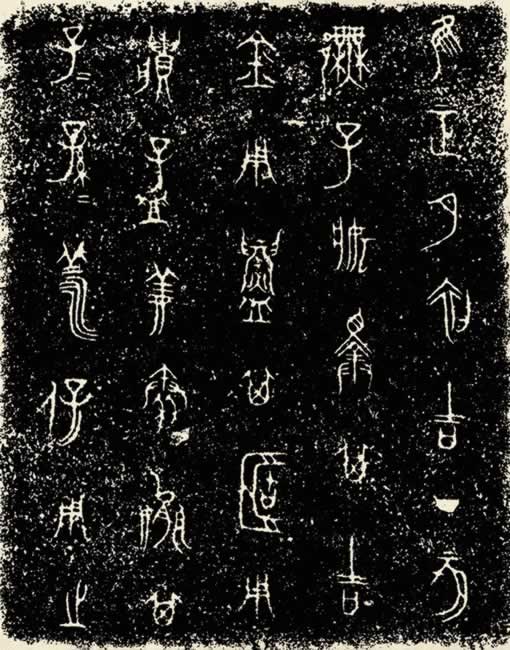 隹正月初吉丁亥
鄦子妝擇其吉
金用鑄其簠用
賸孟姜秦嬴其
子=孫=羕保用之